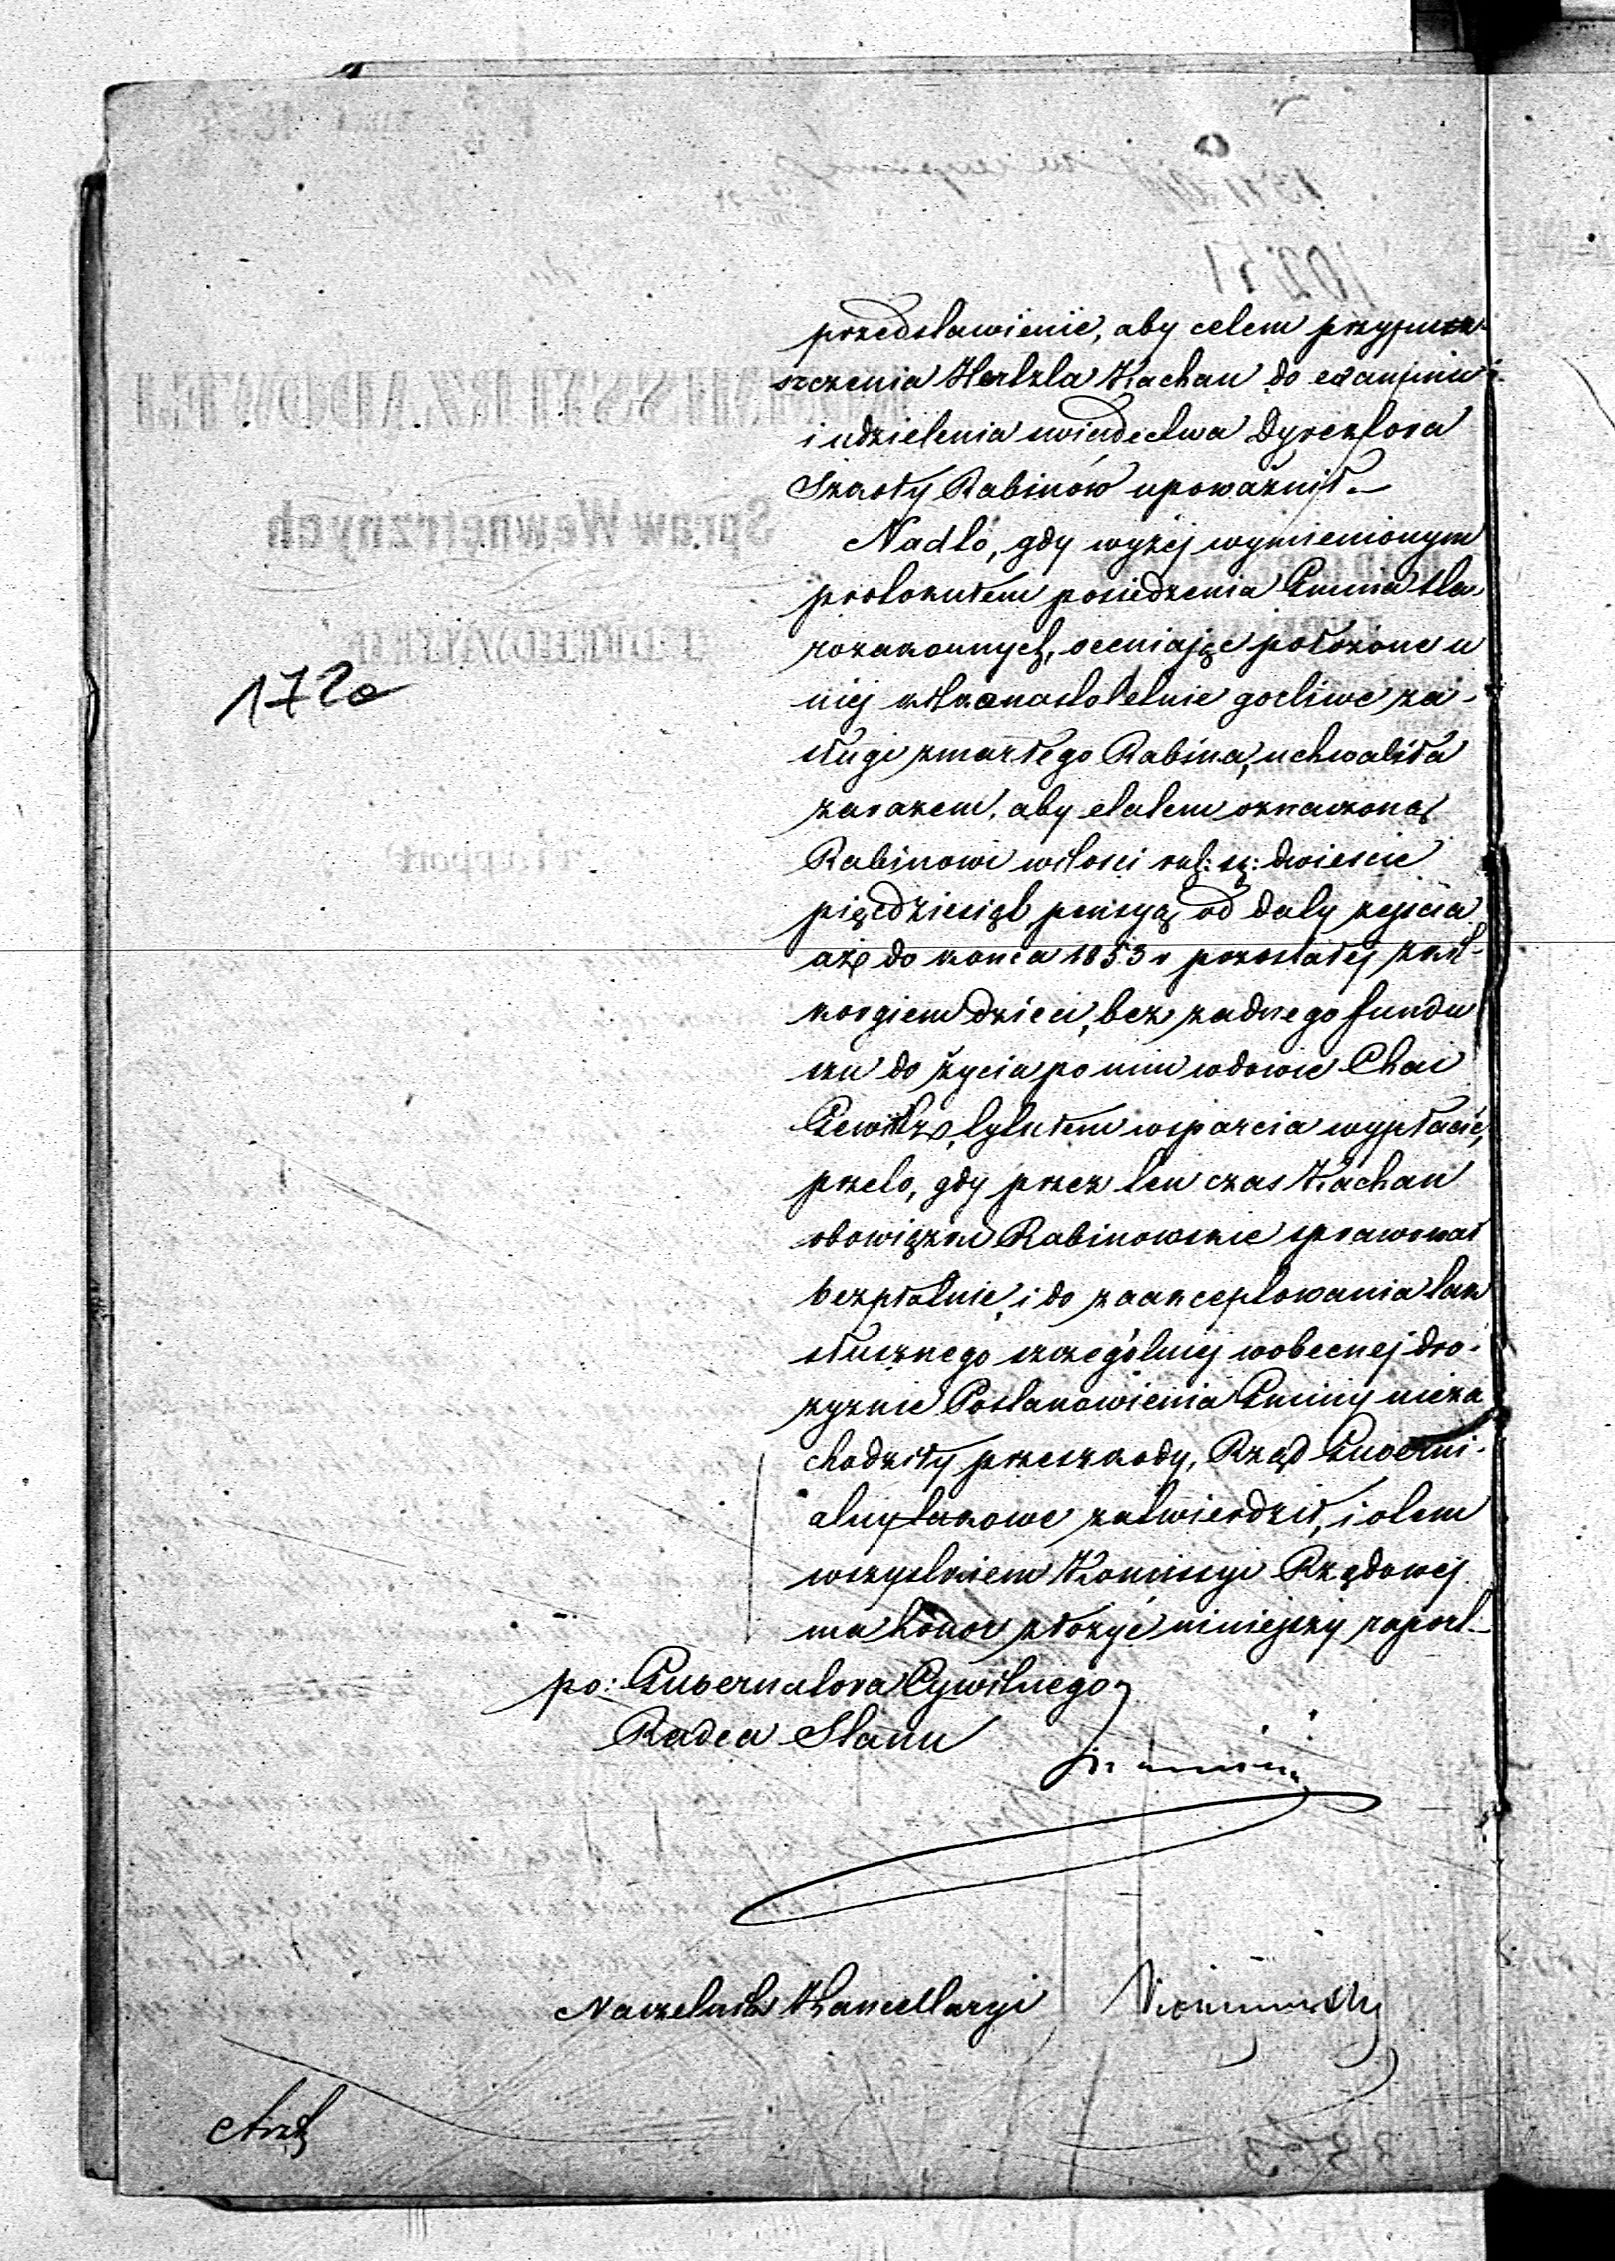 przedstawienie, aby celem przypu-
szczenia Hertzla Kachan do examinu
i udzielenia świadectwa Dyrektora
Szkoły Rabinów upoważnił.—
Nadto, gdy wyżej wymienionym
protokułem posiedzenia Gmina sta
rozakonnych, oceniając położone u
niej kilkonastoletnie gorliwe za-
sługi zmarłego Rabina, uchwaliła
zarazem, aby etatem oznaczoną
Rabinowi w ilości rub: sr: dwieście
pięćdziesiąt, pensyą od daty zejścia
aż do końca 1853 r pozostałej z kil-
korgiem dzieci, bez żadnego fundu
szu do życia po nim wdowie Chai
tytułem wsparcia wypłacić,
przeto, gdy przez ten czas Kachan
obowiązki Rabinowskie sprawował
bezpłatnie, i do zaakceptowania tak
słusznego szczególniej w obecnej dro-
żyznie Postanowienia Gminy nieza
chodziły przeszkody, Rząd Guberni-
alny takowe zatwierdził, i o tem
wszystkiem Komissyi Rządowej
ma honor złożyć niniejszy raport.—
po: Gubernatora Cywilnego
Radca Stanu
172a
Naczelnik Kancellaryi